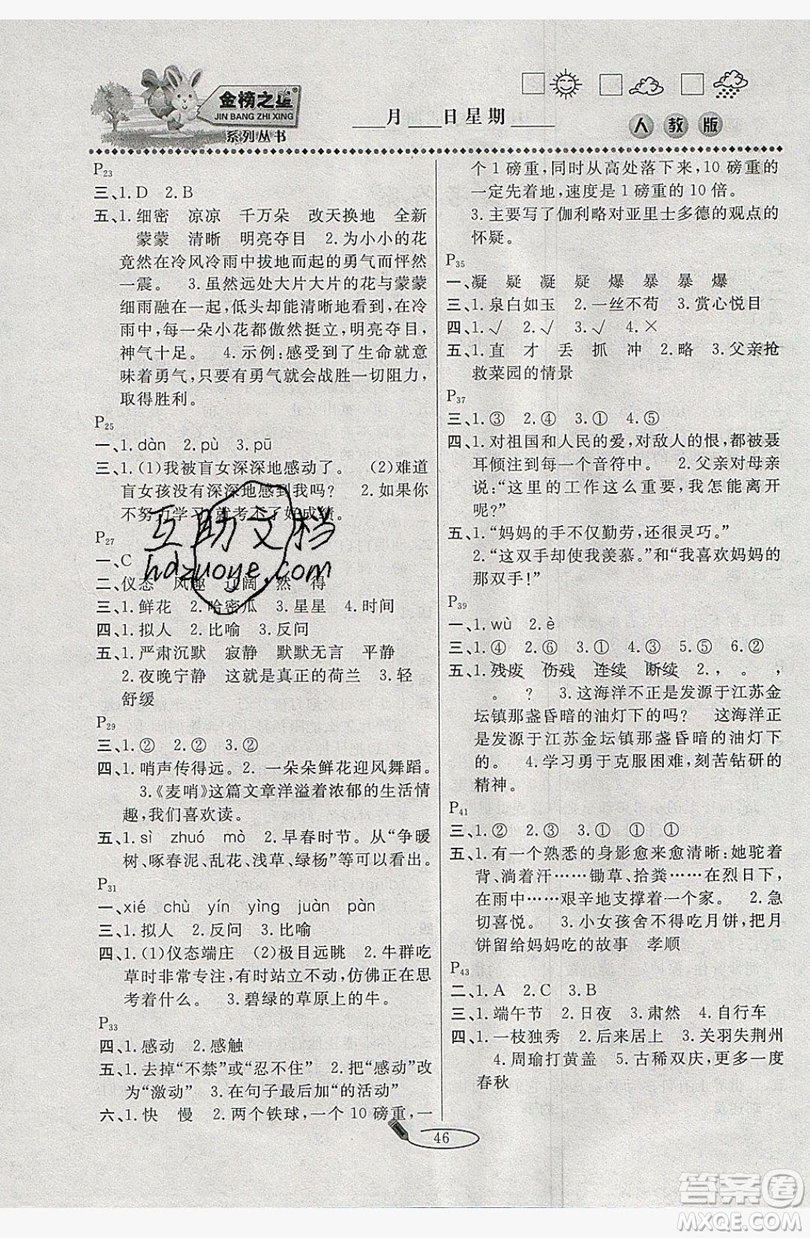 金榜之星
JIN BANG ZHI XING
系列丛书
____月____日星期____
人教版
P23
三、1.D 2.B
五、1.细密 凉凉 千万朵 改天换地 全新
蒙蒙 清晰 明亮夺目 2.为小小的花
竟然在冷风冷雨中拔地而起的勇气而怦然
一震。 3.虽然远处大片大片的花与蒙蒙
细雨融在一起,低头却能清晰地看到,在冷
雨中,每一朵小花都傲然挺立,明亮夺目,
神气十足。 4.示例:活着的生命就意
味着勇气,只要有勇气就会战胜一切阻力,
取得胜利。
P25
一、1.dàn 2.pù 3.pū
三、1.(1)我被盲女深深地感动了。 (2)难道
盲女孩没有深深地感到我吗? 2.如果你
不努力学习,就考不了好成绩。
P27
一、C
二、仪态 风趣 辽阔 然 得
三、1.鲜花 2.哈密瓜 3.星星 4.时间
四、1.拟人 2.比喻 3.反问
五、1.严肃沉默 寂静 默默无言 平静
2.夜晚宁静 这就是真正的荷兰 3.轻
舒缓
P29
三、1.② 2.② 3.②
四、1.哨声传得远。 2.一朵朵鲜花迎风舞蹈。
3.《麦哨》这篇文章洋溢着浓郁的生活情
趣,我们喜欢读。
五、1.sì zhuó mò 2.早春时节。从“争暖
树、啄春泥、乱花、浅草、绿杨”等可以看出。
P31
一、xié chù yín yìng juàn pàn
三、1.拟人 2.反问 3.比喻
四、1.(1)仪态端庄 (2)极目远眺 2.牛群吃
草时非常专注,有时站立不动,仿佛正在思
考着什么。 3.碧绿的草原上的牛。
P33
四、1.感动 2.感触
五、1.去掉“不禁”或“忍不住” 2.把“感动”改
为“激动” 3.在句子最后加“的活动”
六、1.快 慢 2.两个铁球,一个10磅重,一
个1磅重,同时从高处落下来,10磅重的
一定先着地,速度是1磅重的10倍。
3.主要写了伽利略对亚里士多德的观点的
怀疑。
P35
一、凝 疑 凝 疑 爆 暴 暴 爆
三、1.泉白如玉 2.一丝不苟 3.赏心悦目
四、1.√ 2.√ 3.√ 4.×
五、1.直 才 丢 抓 冲 2.略 3.父亲抢
救菜园的情景
P37
三、1.③ 2.④ 3.① 4.⑤
四、1.对祖国和人民的爱,对敌人的恨,都被聂
耳倾注到每一个音符中。 2.父亲对母亲
说:“这里的工作这么重要,我怎能离
开呢?”
五、1.“妈妈的手不仅勤劳,还很灵巧。”
2.“这双手却使我羡慕。”“我喜欢妈妈的
那双手!”
P39
一、1.wù 2.è
三、1.④ 2.⑥ 3.① 4.③ 5.⑤ 6.②
五、1.残废 伤残 连续 断续 2.， 。 ，
。 ? 3.这海洋不正是发源于江苏金
坛镇那盏昏暗的油灯下的吗? 这海洋正
是发源于江苏金坛镇那盏昏暗的油灯下
的。 4.学习勇于克服困难,刻苦钻研的
精神。
P41
三、1.① 2.② 3.① 4.①
五、1.有一个熟悉的身影愈来愈清晰:她驼着
背、淌着汗……锄草、拾粪……在烈日下,
在雨中……艰辛地支撑着一个家。 2.急
切喜悦。 3.小女孩舍不得吃月饼,把月
饼留给妈妈吃的故事 孝顺
P43
二、1.A 2.C 3.B
三、1.端午节 2.日夜 3.肃然 4.自行车
四、1.一枝独秀 2.后来居上 3.关羽失荆州
4.周瑜打黄盖 5.古稀双庆,更多一度
春秋
46
互助文档
hdzuoye.com
答案圈
MXQE.COM